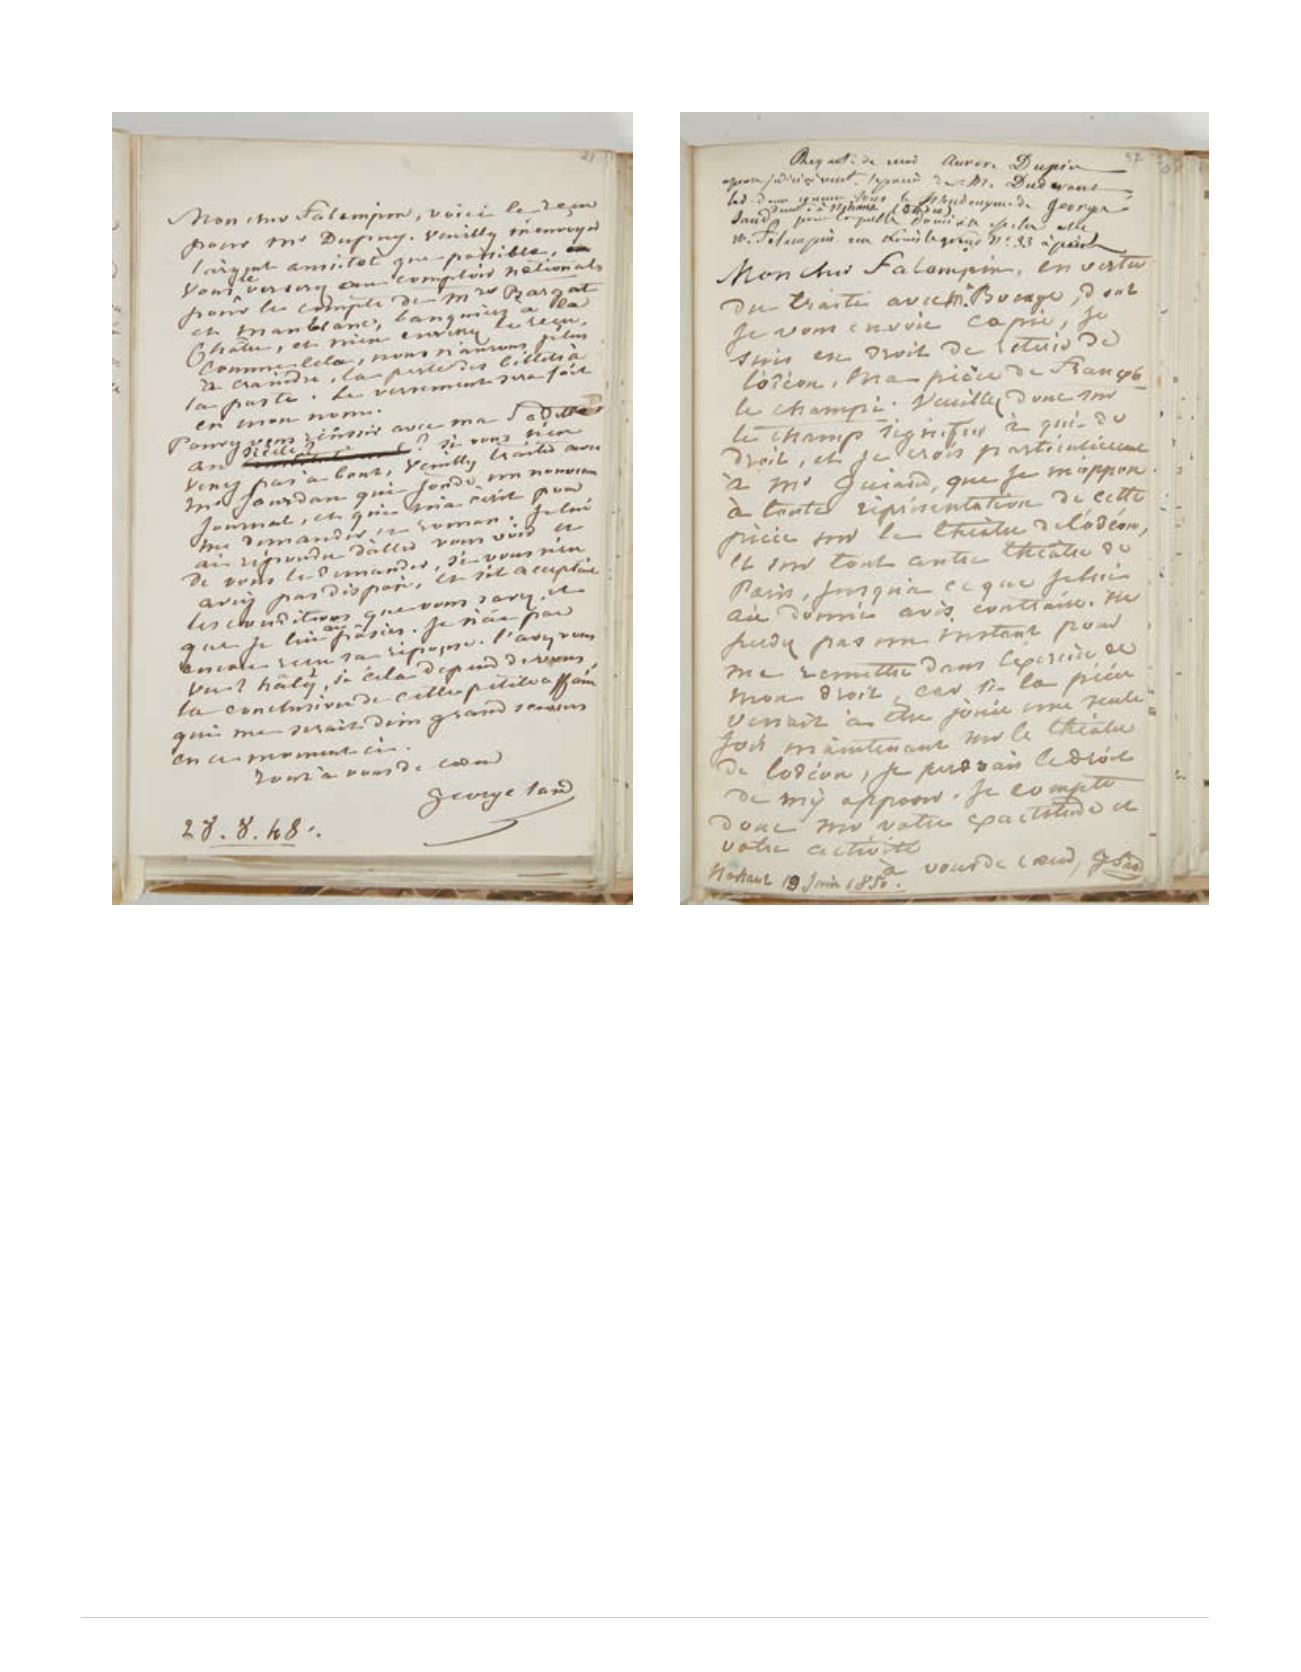 21
Mon cher Falampin, voici le reçu
pour mr Dupuy. Veuillez m'envoyer
l'argent aussitot que possible, ou
vous le verserez au comptoir national
pour le compte de mrs
et Manblanc, banquiers à la
Châtre, et m'en enverrez le reçu.
Comme cela, nous n'aurons plus
à craindre, la perte des billets à
la poste. Le versement sera fait
en mon nom.
Pouvez vous réussir avec ma Fadette
au siècle? si vous n'en
venez pas à bout, veuillez traiter avec
mr Jourdan qui fonde un nouveau
journal, et qui m'a écrit pour
me demander ce roman. Je lui
ai répondu d'aller vous voir et
de vous le demander, si vous n'en
avez pas disposé, et s'il accepte
les conditions que vous savez, et
que je lui ai . Je n'ai pas
encore reçu sa réponse. l'avez vous
vu? hâtez, si cela dépend de vous,
la conclusion de cette petite affaire
qui me serait d'un grand secours
en ce moment ci.
Tout à vous de cœur
George Sand
28. 8. 48.
57
Requête de moi Aurore Dupin
épouse judiciairement séparée de M. Dudevant
connue sous le pseudonyme de George
Sand à Nohant (Indre)
pour laquelle domicile est élu chez
M. Falampin rue Louis le grand N° 33 à paris
Mon cher Falampin, en vertu
du traité avec Mr Bocage, dont
je vous envoie copie, je
suis en droit de retirer de
l'odéon, ma pièce de François
le champi. Veuillez donc sur
le champ signifier à qui de
droit, et je crois particulièrement
à mr , que je m'oppose
à toute représentation de cette
pièce sur le théâtre de l'odéon,
et sur tout autre théâtre de
Paris, jusqu'à ce que je lui
aie donné avis contraire. Ne
perdez pas un instant pour
me remettre dans l'exercice de
mon droit, car si la pièce
venait à être jouée une seule
fois maintenant sur le théâtre
de l'odéon, je perdrais le droit
de m'y opposer. Je compte
donc sur votre exactitude et
votre activité
à vous de cœur, G Sand
Nohant 19 Juin 1850.